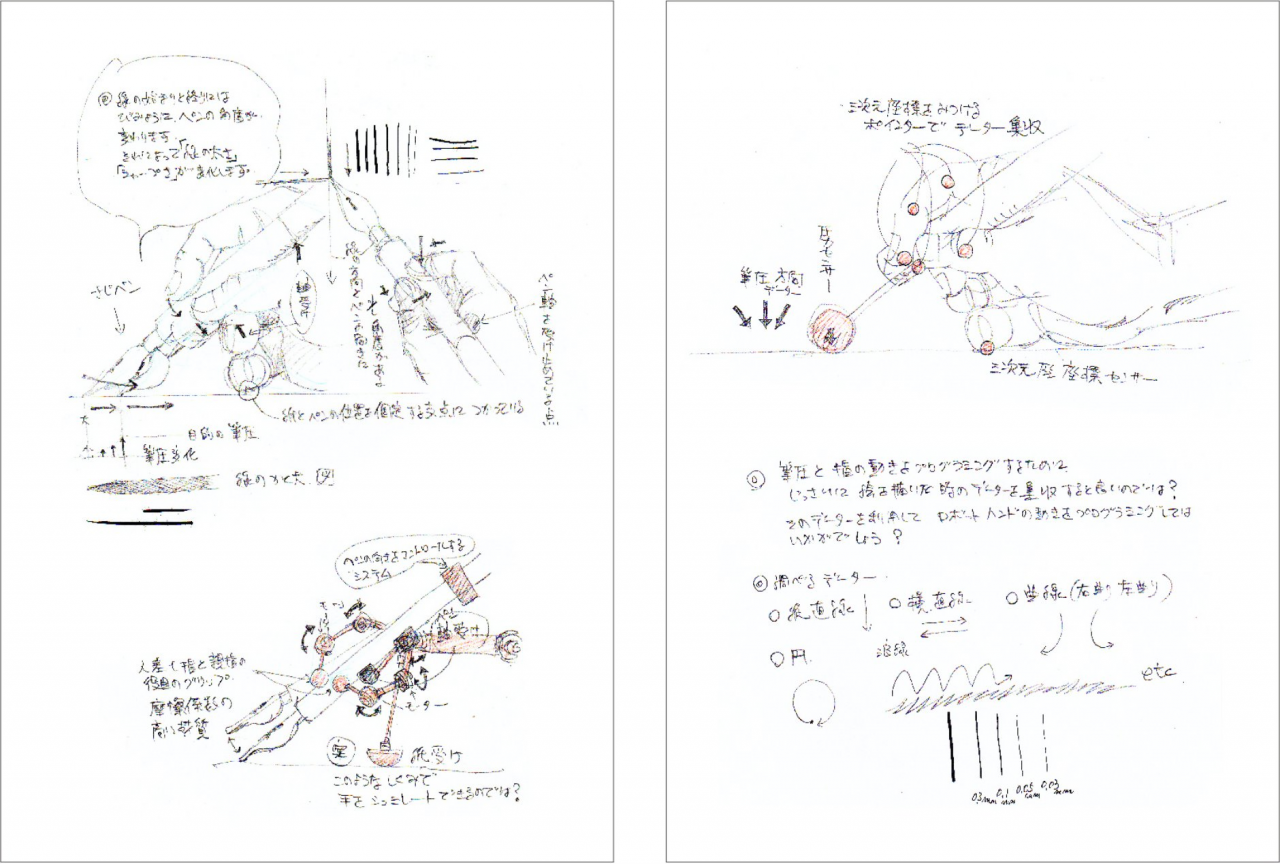 線の始まりと終りには
びみょうに、ペンの角度が
変わります
それによって「線の太さ」
「シャープさ」が変化します。
さじペン
軸受け
線の方向とペンの向きは
少し角度がある
ペン軸を受け止めている点
紙とペンの位置を固定する支点につかっている
太
目的の筆圧
筆圧変化
線の
ペンの向きをコントロールする
システム
モーター
ペン
軸受け
人差し指と親指の
役目のグリップ
摩擦係数の
高い材質
モーター
紙受け
このようなしくみで
手をシュミレートできるのでは?
三次元座標をみつける
ポインターでデーター集収
圧力センサー
筆圧 方向
データー
三次元座座標センサー
◎ 筆圧と指の動きをプログラミングするために
じっさいに線を描いた時のデーターを集収すると良いのでは?
そのデーターを利用して ロボットハンドの動きをプログラミングしては
いかがでしょう?
◎ 調べるデーター
○ 縦直線 ○ 横直線 ○ 曲線(右曲り 左曲り)
○ 円
etc
0.3mm 0.1mm 0.05mm 0.03mm